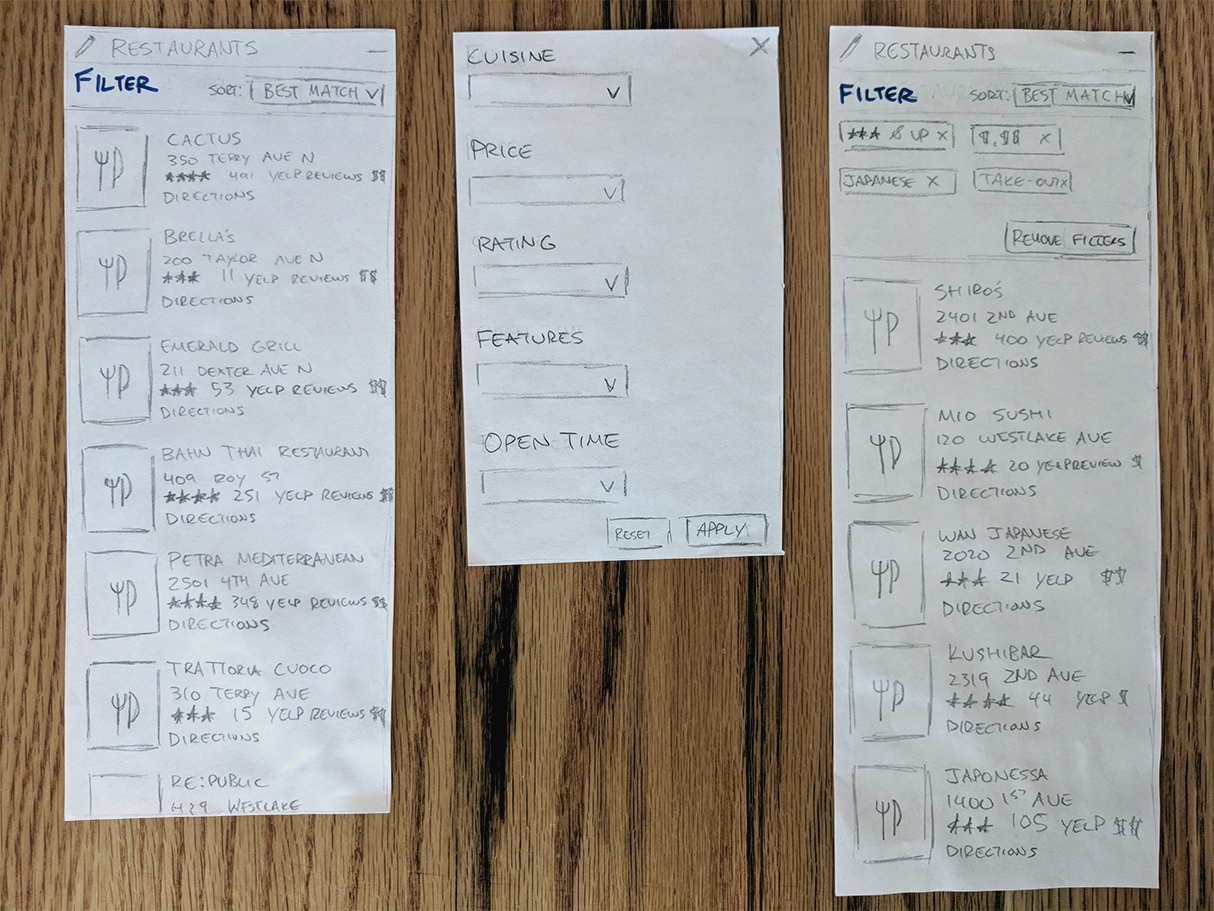 RESTAURANTS
FILTER SORT: BEST MATCH
CACTUS
350 TERRY AVE N
**** 491 YELP REVIEWS $$
DIRECTIONS
BRELLA'S
200 TAYLOR AVE N
*** 11 YELP REVIEWS $$
DIRECTIONS
EMERALD GRILL
211 DEXTER AVE N
*** 53 YELP REVIEWS $$
DIRECTIONS
BAHN THAI RESTAURANT
409 ROY ST
**** 251 YELP REVIEWS $$
DIRECTIONS
PETRA MEDITERRANEAN
2501 4TH AVE
**** 348 YELP REVIEWS $$
DIRECTIONS
TRATTORIA CUOCO
310 TERRY AVE
*** 15 YELP REVIEWS $$
DIRECTIONS
RE:PUBLIC
WESTLAKE
CUISINE X
PRICE
RATING
FEATURES
OPEN TIME
RESET APPLY
RESTAURANTS
FILTER SORT: BEST MATCH
*** & UP X $,$$ X
JAPANESE X TAKE-OUT X
REMOVE FILTERS
SHIRO'S
2401 2ND AVE
*** 400 YELP REVIEWS $$
DIRECTIONS
MIO SUSHI
120 WESTLAKE AVE
**** 20 YELP REVIEW $
DIRECTIONS
WAN JAPANESE
2020 2ND AVE
*** 21 YELP $$
DIRECTIONS
KUSHIBAR
2319 2ND AVE
**** 44 YELP $
DIRECTIONS
JAPONESSA
1400 1ST AVE
*** 105 YELP $$
DIRECTIONS